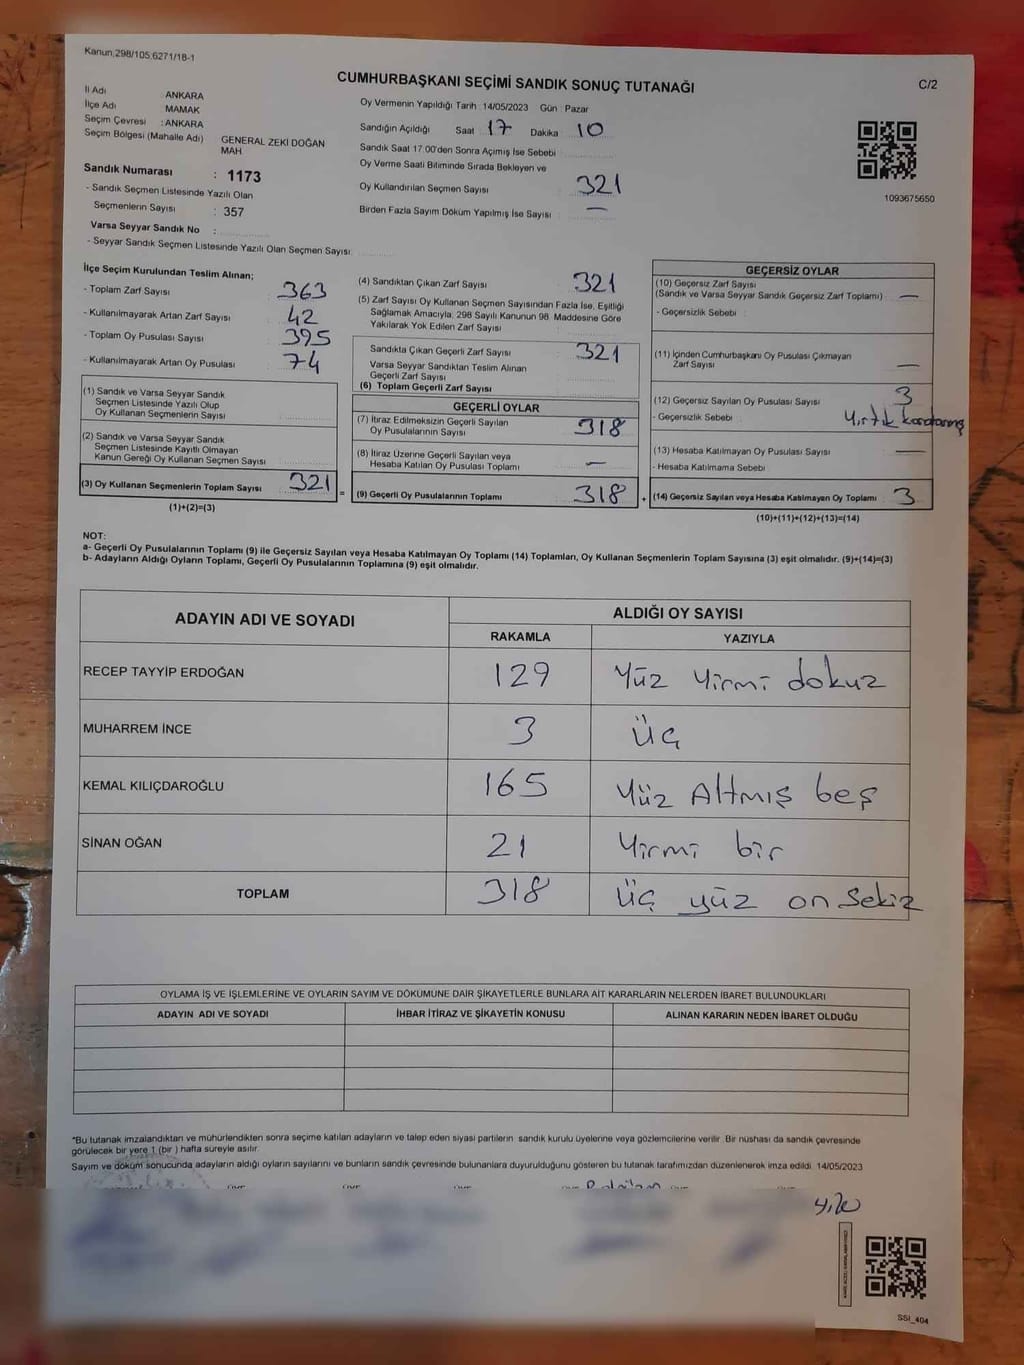 Kanun,298/105,6271/18-1
CUMHURBAŞKANI SEÇİMİ SANDIK SONUÇ TUTANAĞI
C/2
İl Adı ANKARA
İlçe Adı MAMAK
Seçim Çevresi : ANKARA
Seçim Bölgesi (Mahalle Adı) GENERAL ZEKİ DOĞAN MAH
Sandık Numarası : 1173
- Sandık Seçmen Listesinde Yazılı Olan
Seçmenlerin Sayısı : 357
Varsa Seyyar Sandık No :
- Seyyar Sandık Seçmen Listesinde Yazılı Olan Seçmen Sayısı:
Oy Vermenin Yapıldığı Tarih :14/05/2023 Gün : Pazar
Sandığın Açıldığı Saat 17 Dakika 10
Sandık Saat 17.00'den Sonra Açımış İse Sebebi
Oy Verme Saati Bitiminde Sırada Bekleyen ve
Oy Kullandırılan Seçmen Sayısı 321
Birden Fazla Sayım Döküm Yapılmış İse Sayısı —
1093675650
İlçe Seçim Kurulundan Teslim Alınan;
- Toplam Zarf Sayısı : 363
- Kullanılmayarak Artan Zarf Sayısı : 42
- Toplam Oy Pusulası Sayısı : 395
- Kullanılmayarak Artan Oy Pusulası : 74
(1) Sandık ve Varsa Seyyar Sandık
Seçmen Listesinde Yazılı Olup
Oy Kullanan Seçmenlerin Sayısı
(2) Sandık ve Varsa Seyyar Sandık
Seçmen Listesinde Kayıtlı Olmayan
Kanun Gereği Oy Kullanan Seçmen Sayısı
(3) Oy Kullanan Seçmenlerin Toplam Sayısı 321 =
(1)+(2)=(3)
(4) Sandıktan Çıkan Zarf Sayısı 321
(5) Zarf Sayısı Oy Kullanan Seçmen Sayısından Fazla İse, Eşitliği
Sağlamak Amacıyla; 298 Sayılı Kanunun 98. Maddesine Göre
Yakılarak Yok Edilen Zarf Sayısı
Sandıkta Çıkan Geçerli Zarf Sayısı 321
Varsa Seyyar Sandıktan Teslim Alınan
Geçerli Zarf Sayısı
(6) Toplam Geçerli Zarf Sayısı
GEÇERLİ OYLAR
(7) İtiraz Edilmeksizin Geçerli Sayılan
Oy Pusulalarının Sayısı 318
(8) İtiraz Üzerine Geçerli Sayılan veya
Hesaba Katılan Oy Pusulası Toplamı —
(9) Geçerli Oy Pusulalarının Toplamı 318 +
GEÇERSİZ OYLAR
(10) Geçersiz Zarf Sayısı
(Sandık ve Varsa Seyyar Sandık Geçersiz Zarf Toplamı) —
- Geçersizlik Sebebi :
(11) İçinden Cumhurbaşkanı Oy Pusulası Çıkmayan
Zarf Sayısı —
(12) Geçersiz Sayılan Oy Pusulası Sayısı 3
- Geçersizlik Sebebi : Yırtık
(13) Hesaba Katılmayan Oy Pusulası Sayısı —
- Hesaba Katılmama Sebebi
(14) Geçersiz Sayılan veya Hesaba Katılmayan Oy Toplamı 3
(10)+(11)+(12)+(13)=(14)
NOT:
a- Geçerli Oy Pusulalarının Toplamı (9) ile Geçersiz Sayılan veya Hesaba Katılmayan Oy Toplamı (14) Toplamları, Oy Kullanan Seçmenlerin Toplam Sayısına (3) eşit olmalıdır. (9)+(14)=(3)
b- Adayların Aldığı Oyların Toplamı, Geçerli Oy Pusulalarının Toplamına (9) eşit olmalıdır.
ADAYIN ADI VE SOYADI ALDIĞI OY SAYISI
RAKAMLA YAZIYLA
RECEP TAYYİP ERDOĞAN 129 Yüz Yirmi dokuz
MUHARREM İNCE 3 Üç
KEMAL KILIÇDAROĞLU 165 Yüz Altmış beş
SİNAN OĞAN 21 Yirmi bir
TOPLAM 318 Üç yüz on sekiz
OYLAMA İŞ VE İŞLEMLERİNE VE OYLARIN SAYIM VE DÖKÜMÜNE DAİR ŞİKAYETLERLE BUNLARA AİT KARARLARIN NELERDEN İBARET BULUNDUKLARI
ADAYIN ADI VE SOYADI İHBAR İTİRAZ VE ŞİKAYETİN KONUSU ALINAN KARARIN NEDEN İBARET OLDUĞU
*Bu tutanak imzalandıktan ve mühürlendikten sonra seçime katılan adayların ve talep eden siyasi partilerin sandık kurulu üyelerine veya gözlemcilerine verilir. Bir nüshası da sandık çevresinde
görülecek bir yere 1 (bir ) hafta süreyle asılır.
Sayım ve döküm sonucunda adayların aldığı oyların sayılarını ve bunların sandık çevresinde bulunanlara duyurulduğunu gösteren bu tutanak tarafımızdan düzenlenerek imza edildi. 14/05/2023
SSI_404